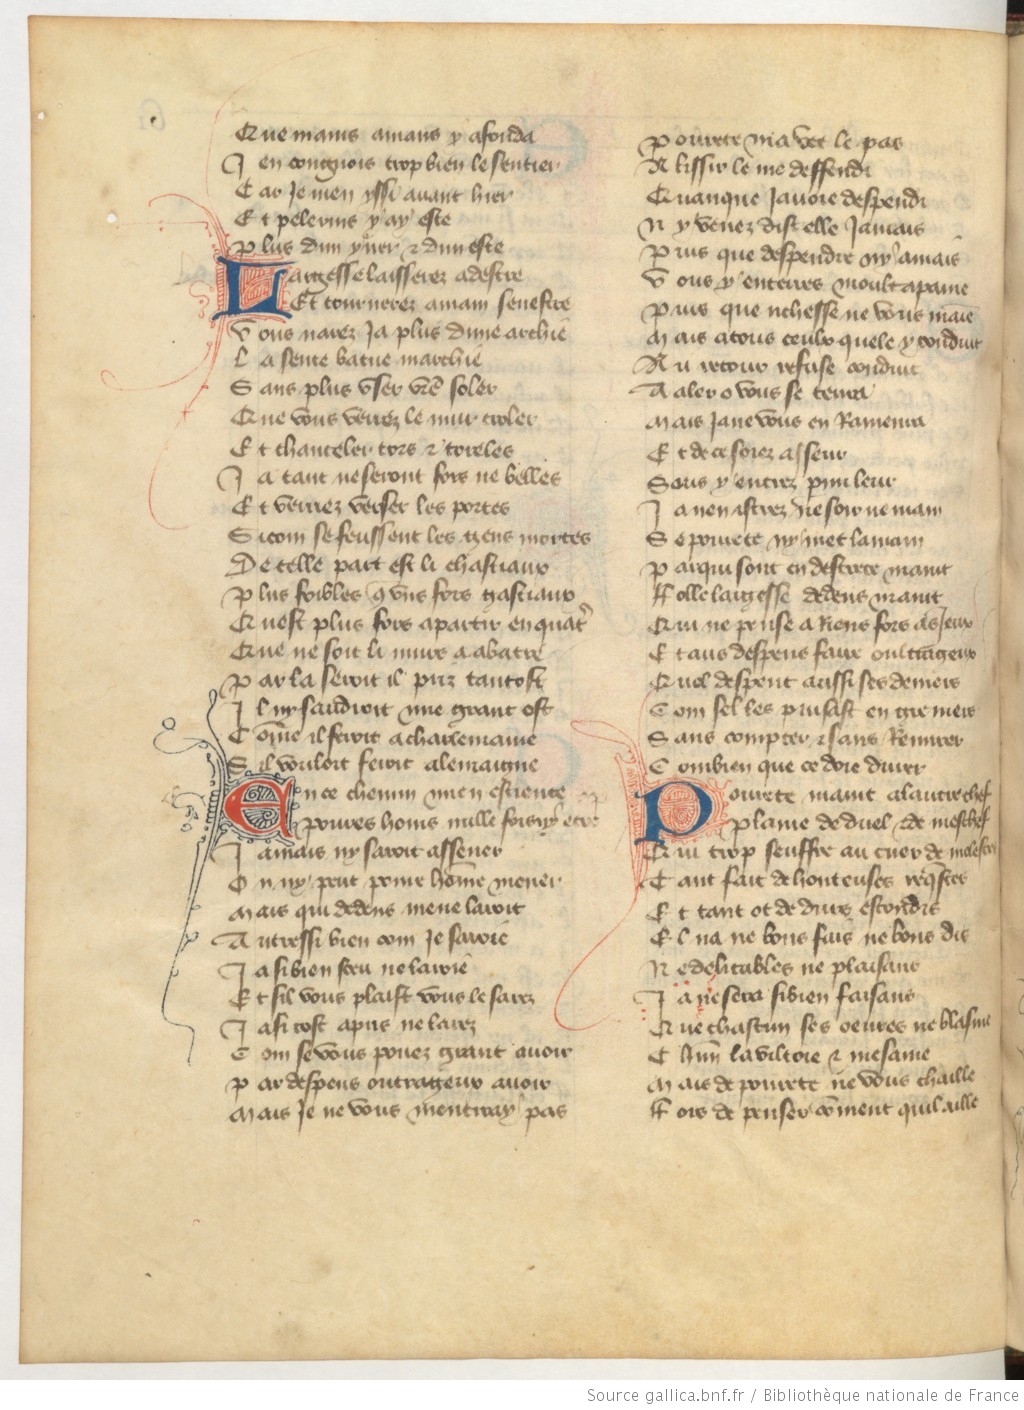 Que mains amans y afonda
Jen congnois trop bien le sentier
Car Je men yssi avant hier
Et pelerins y ay este
Plus dun yver & dun este
Largesse laisserez a destre
Et tournerez a main senestre
Vous narez Ja plus dune archie
La sente batue marchie
Sans plus user vre soler
Que vous verrez le mur croler
Et chanceler tors & toreles
Ja tant ne seront fors ne belles
Et verrez verser les portes
Sicom se feussent les gens mortes
De telle part est li chastiaux
Plus foibles quns fors gastiaux
Quest plus fors a partir en quatre
Que ne soit li murs a abatre
Par la seroit il pris tantost
Il ny faudroit une grant ost
Come il feroit a charlemaine
Sil vouloit ferir alemaigne
En ce chemin mien escience
Poures homs mille fois ny
Jamais ny saroit assener
On ny peut poure home mener
Mais qui dedens mene laroit
Autressi bien com Je saroie
Ja si bien sceu ne larie
Et sil vous plaist vous le sarez
Ja si tost apris ne larez
Com se vous pouez grant avoir
Par despens outrageux avoir
Mais Je ne vous mentiray pas
Pourete ma vee le pas
A lissir le me deffendi
Quanque Javoie despendi
Ny venez dist elle Jamais
Puis que despendre ny amais
Vous y enterres moult a paine
Puis que richesse ne vous maine
Mais a tous ceulx quele y conduit
Au retour refuse conduit
A aler o vous se tenra
Mais Ja ne vous en Ramenra
Et de ce soiez asseur
Sous y entrez p nul eur
Ja nen istrez ne soir ne main
Se pourete ny met la main
Par qui sont en destrece maint
Folle largesse dedens maint
Qui ne pense a Riens fors as Jeux
Et aus despens faire oultrageux
Quel despent aussi ses deniers
Com sel les puisast en greniers
Sans compter & sans Remirer
Combien que ce doie durer
Pourete maint a lautre chef
Plaine de duel & de meschef
Qui trop seuffre au cuer de molestes
Tant fait de honteuses reqstes
Et tant ot de durs escondis
El na ne bons fais ne bons dis
Ne delitables ne plaisans
Ja ne sera si bien faisans
Que chascun ses oeures ne blasme
Chun la viltoie & mesame
Mais de pourete ne vous chaille
Fors de penser coment quil aille
Source gallica.bnf.fr / Bibliothèque nationale de France